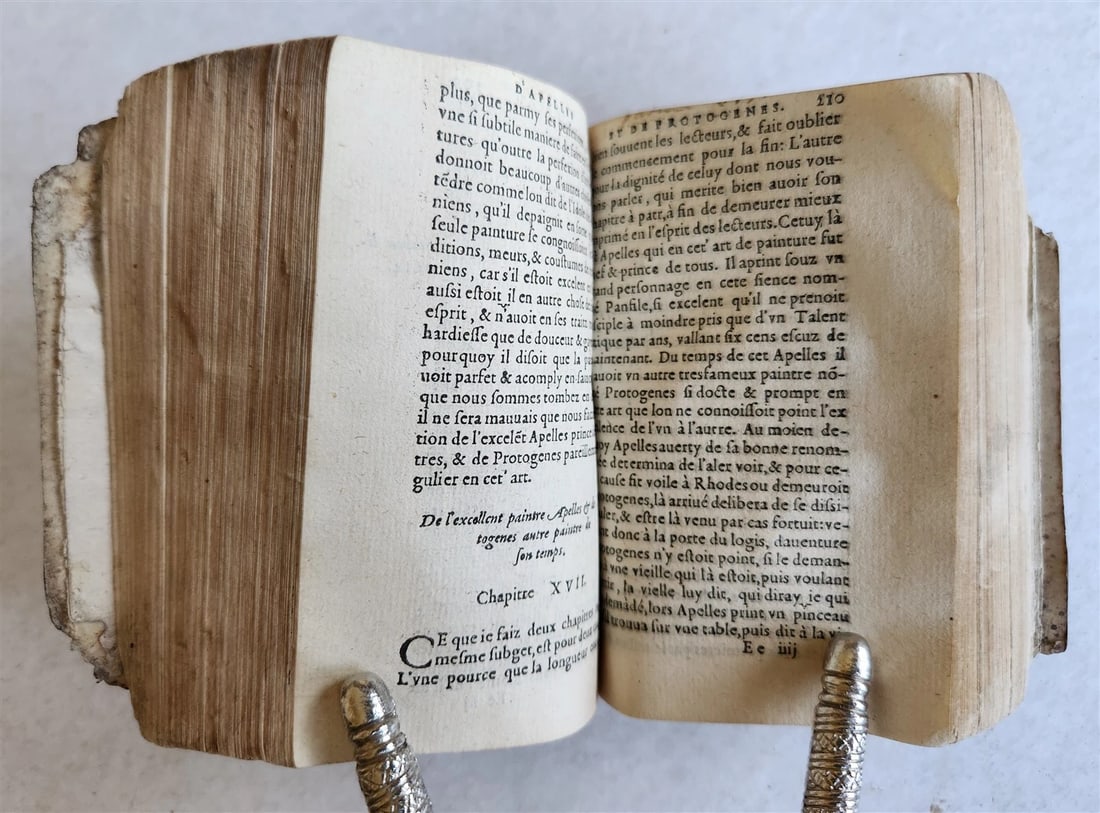 D'APELLES
plus, que parmy ses
vne si subtile maniere de
tures qu'outre la perfection
donnoit beaucoup d'autres
tẽdre comme lon dit de
niens, qu'il depaignit en
seule peinture se
ditions, meurs, & coustumes
niens, car s'il estoit excelent
aussi estoit il en autre chose
esprit, & n'auoit en ses traitz
hardiesse que de douceur &
pourquoy il disoit que la
uoit parfet & acomply en
que nous sommes tombez en
il ne sera mauuais que nous
tion de l'excelẽt Apelles prince
tres, & de Protogenes
gulier en cet' art.
De l'excellent paintre Apelles &
togenes autre paintre
son temps.
Chapitre XVII.
CE que ie faiz deux chapitres
mesme subget, est pour deux
L'vne pource que la longueur
ET DE PROTOGENES. 210
souuent les lecteurs, & fait oublier
commencement pour la fin: L'autre
pour la dignité de celuy dont nous vou-
parler, qui merite bien auoir son
apitre à part, à fin de demeurer mieux
primé en l'esprit des lecteurs. Cetuy là
Apelles qui en cet' art de painture fut
ef & prince de tous. Il aprint souz vn
and personnage en cete sience nom-
Panfile, si excelent qu'il ne prenoit
sciple à moindre pris que d'vn Talent
tique par ans, vallant six cens escuz de
aintenant. Du temps de cet Apelles il
auoit vn autre tresfameux paintre nõ-
Protogenes si docte & prompt en
te art que lon ne connoissoit point l'ex
lence de l'vn à l'autre. Au moien de-
oy Apelles auerty de sa bonne renom-
e determina de l'aler voir, & pour ce-
cause fit voile à Rhodes ou demeuroit
otogenes, là arriué delibera de se dissi-
ler, & estre là venu par cas fortuit: ve-
nt donc à la porte du logis, dauenture
otogenes n'y estoit point, si le deman-
à vne vieille qui là estoit, puis voulant
, la vielle luy dit, qui diray ie qui
demãdé, lors Apelles print vn pinceau
trouua sur vne table, puis dit à la
Ee iiij